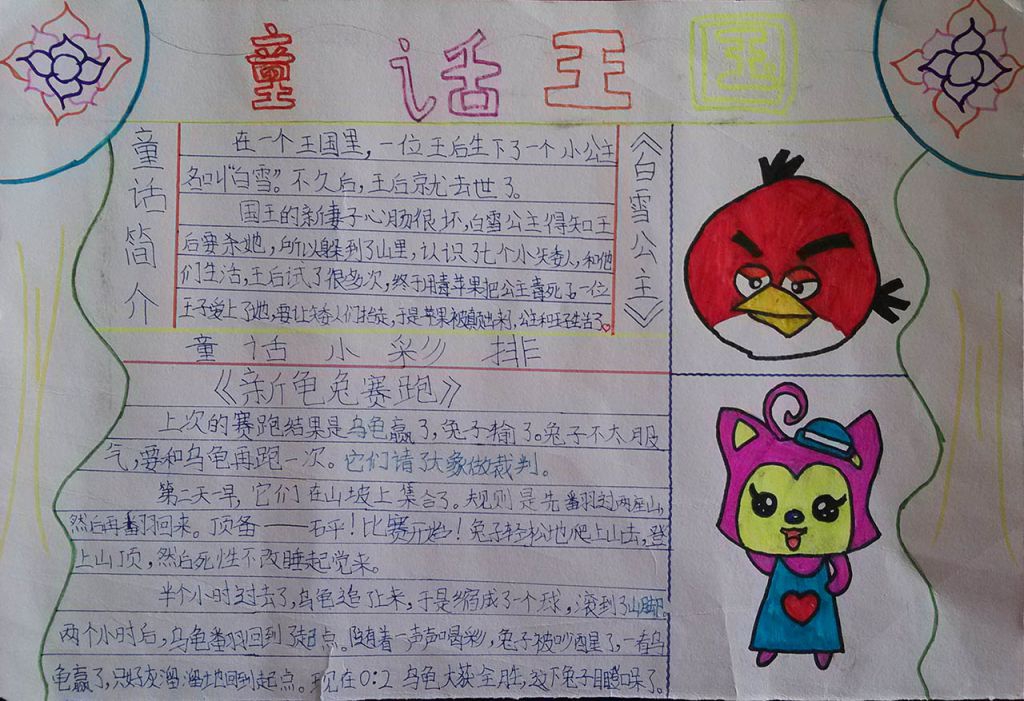 童话王国
童话简介
在一个王国里,一位王后生下了一个小公主
名叫“白雪”。不久后,王后就去世了。
国王的新妻子心肠很坏,白雪公主得知王
后要杀她,所以躲到了山里,认识了七个小矮人,和他
们生活,王后试了很多次,终于用毒苹果把公主毒死了。一位
王子爱上了她,要让矮人们抬走,于是苹果被颠出来,公主和王子生活了。
《白雪公主》
童话小彩排
《新龟兔赛跑》
上次的赛跑结果是乌龟赢了,兔子输了。兔子不太服
气,要和乌龟再跑一次。它们请了大象做裁判。
第二天一早,它们在山坡上集合了。规则是先翻过两座山,
然后再翻回来。预备——砰!比赛开始!兔子轻松地爬上山去,登
上山顶,然后死性不改睡起觉来。
半个小时过去了,乌龟追了上来,于是缩成了一个球,滚到了山脚。
两个小时后,乌龟翻回到了起点。随着一声声喝彩,兔子被吵醒了,一看乌
龟赢了,只好灰溜溜地回到起点。现在0:2乌龟大获全胜,这下兔子目瞪口呆了。